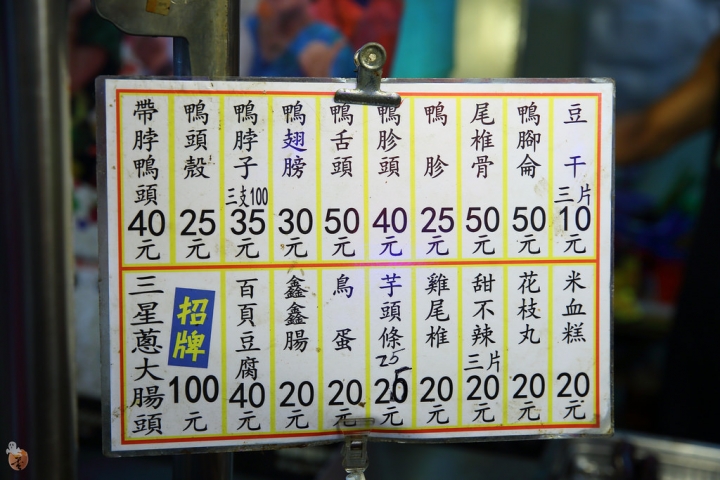 帶脖鴨頭 40元
鴨頭殼 25元
鴨脖子 三支100 35元
鴨翅膀 30元
鴨舌頭 50元
鴨胗頭 40元
鴨胗 25元
尾椎骨 50元
鴨腳侖 50元
豆干 三片 10元
三星蔥大腸頭 招牌 100元
百頁豆腐 40元
鑫鑫腸 20元
鳥蛋 20元
芋頭條 25 25元
雞尾椎 20元
甜不辣 三片 20元
花枝丸 20元
米血糕 20元